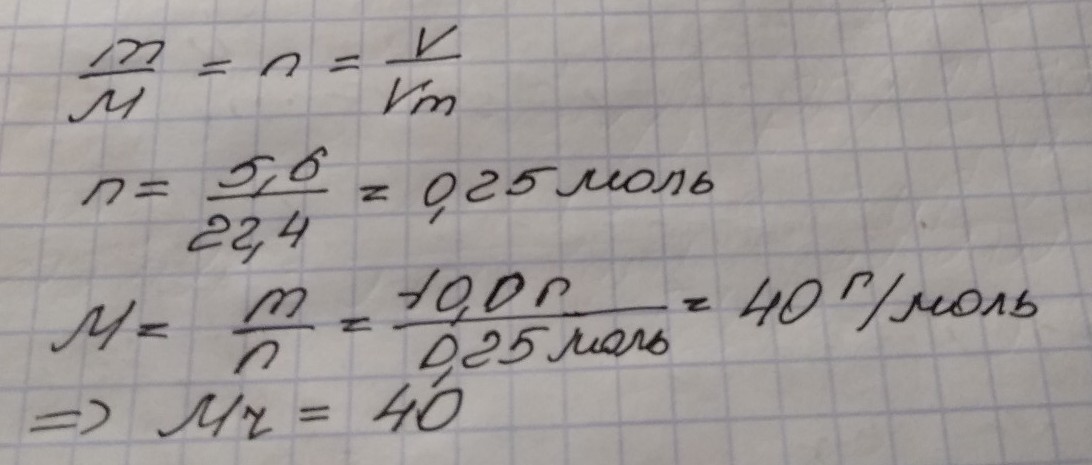 m/M = n = V/Vm
n = 5,6/22,4 = 0,25 моль
M = m/n = 10,0 г/0,25 моль = 40 г/моль
=> Mr = 40